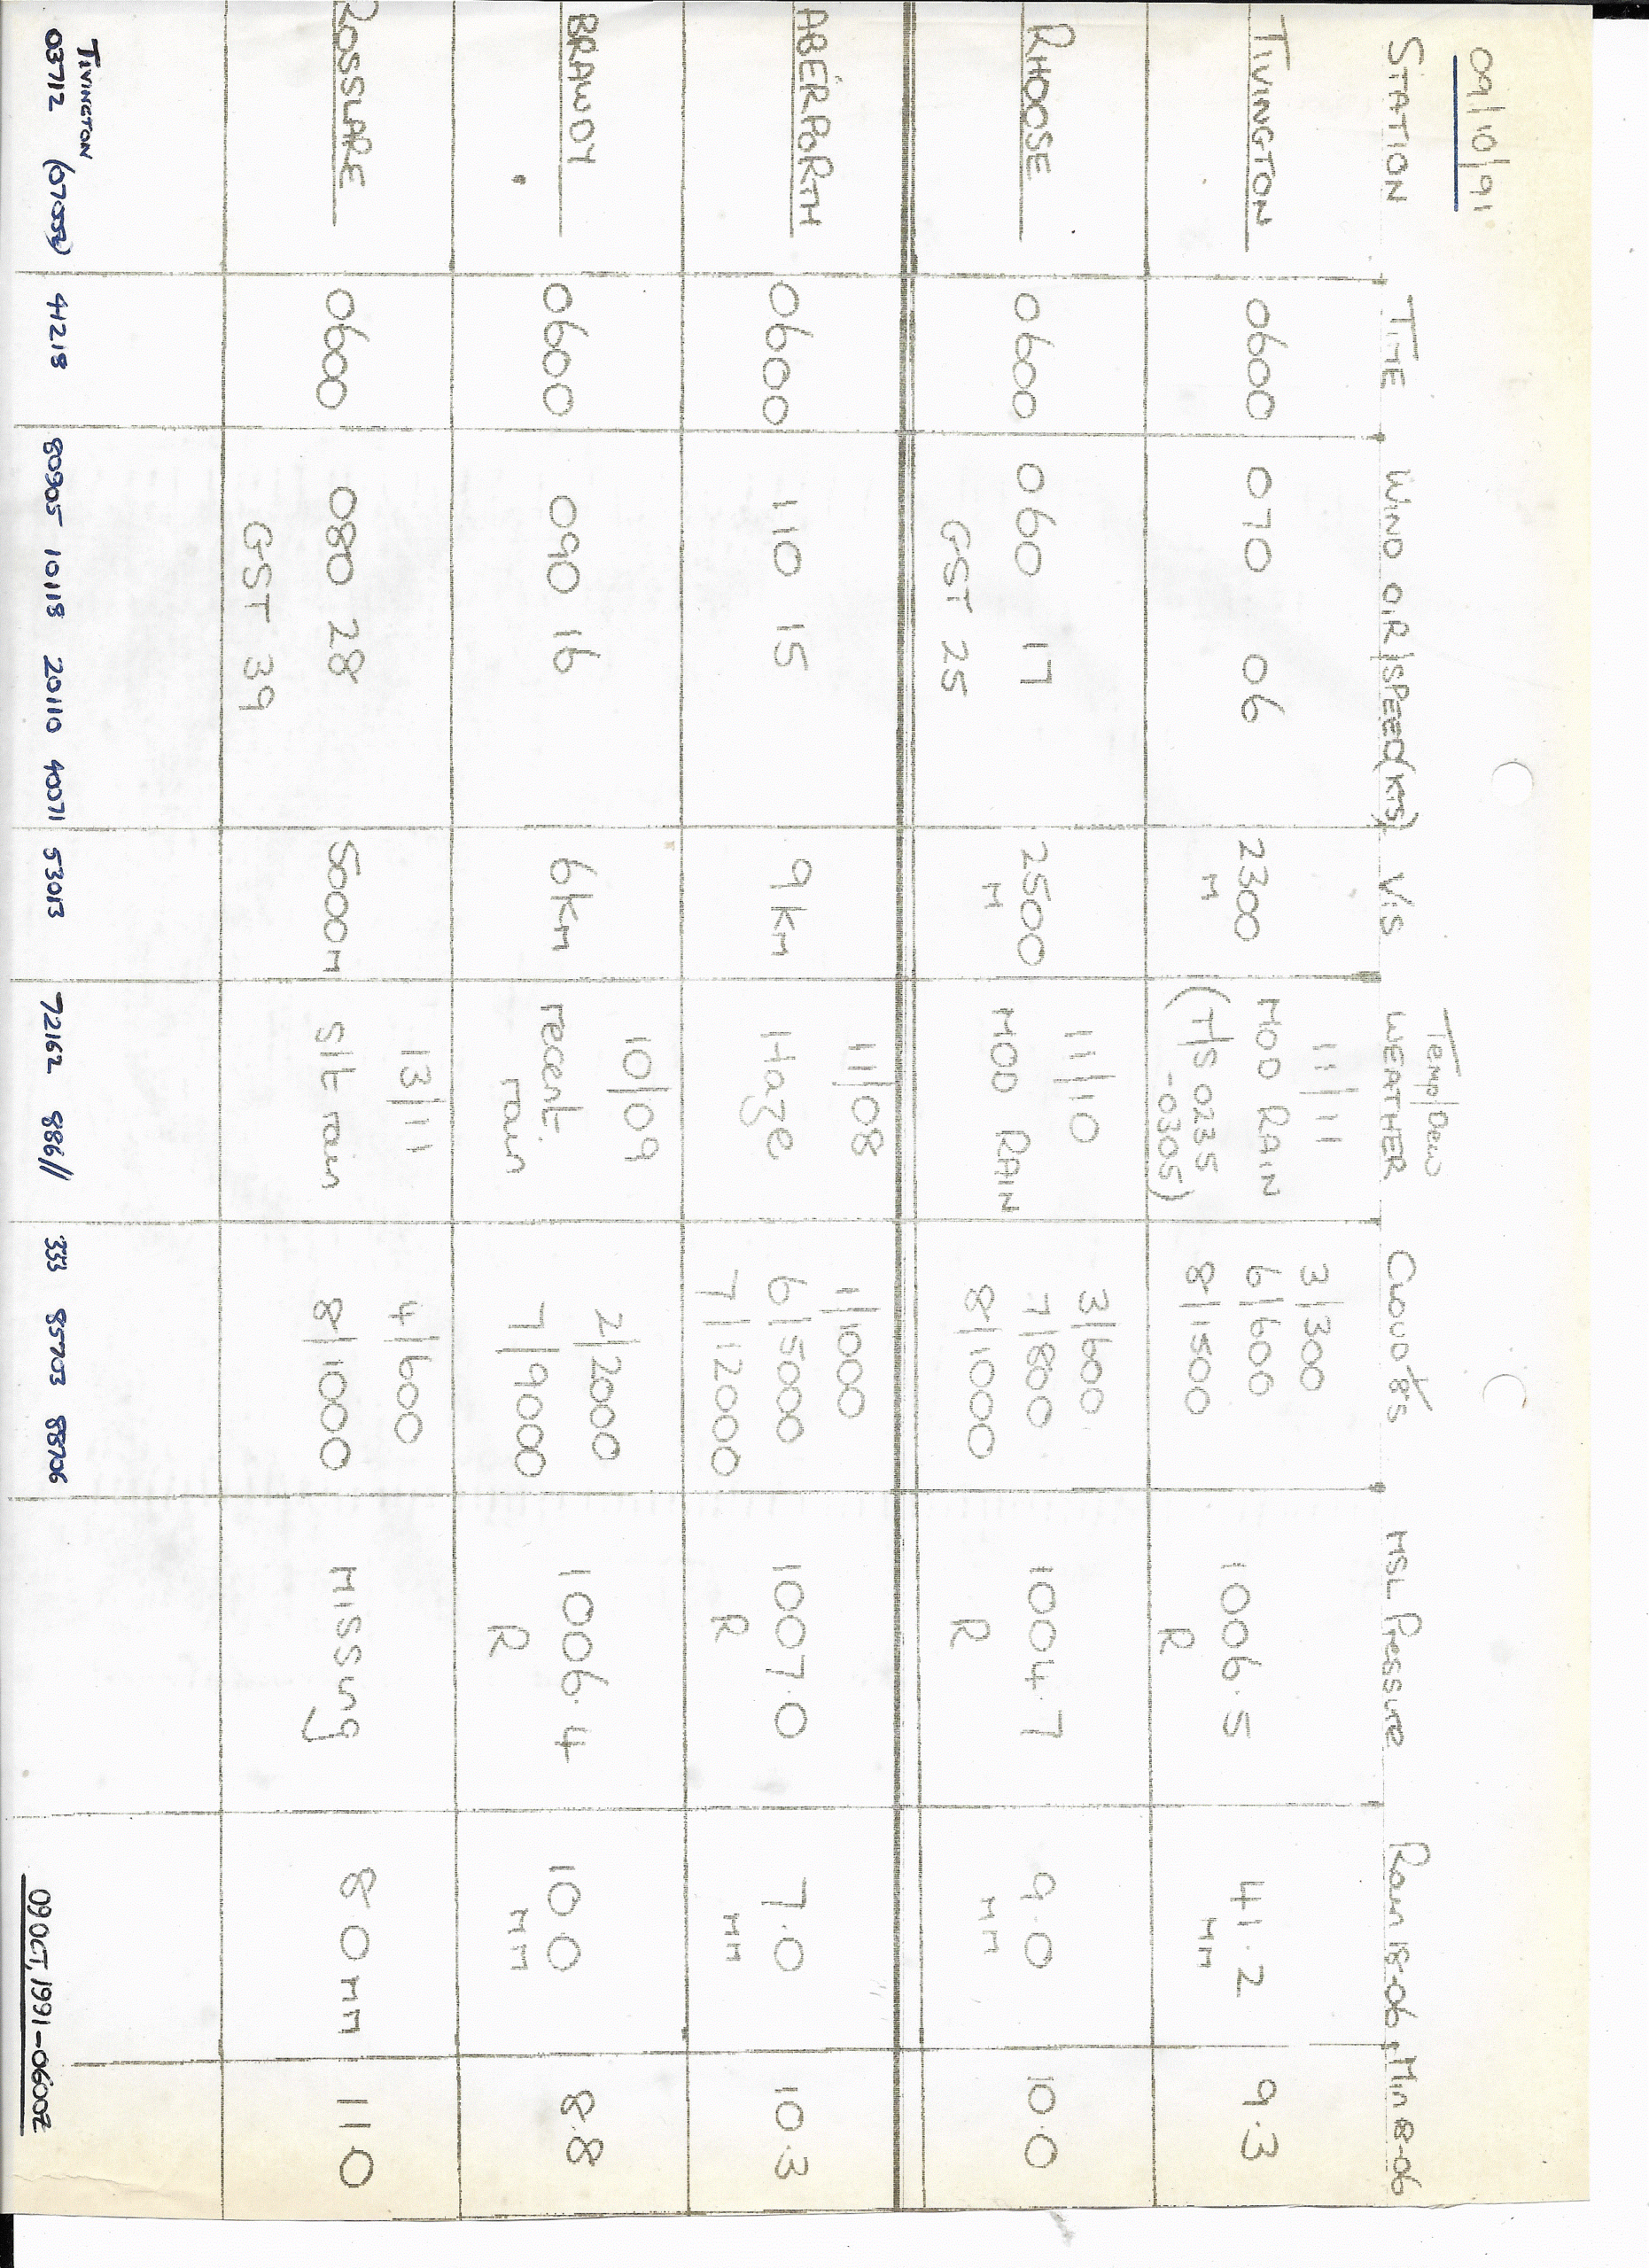 09/10/91
Temp/Dew
STATION TIME WIND DIR/SPEED(KTS) VIS WEATHER CLOUD 1/8'S MSL Pressure Rain 18-06 Min 18-06
TIVINGTON 0600 070 06 2300 M 11/11 MOD RAIN (T/S 0235 -0305) 3/300 6/600 8/1500 1006.5 R 41.2 MM 9.3
RHOOSE 0600 060 17 GST 25 2500 M 11/10 MOD RAIN 3/600 7/800 8/1000 1004.7 R 9.0 MM 10.0
ABERPORTH 0600 110 15 9 KM 11/08 Haze 1/1000 6/5000 7/12000 1007.0 R 7.0 MM 10.3
BRAWDY 0600 090 16 6KM 10/09 recent rain 2/2000 7/9000 1006.4 R 10.0 MM 8.8
ROSSLARE 0600 080 28 GST 39 5000M 13/11 Slt rain 4/600 8/1000 Missing 8.0 MM 11.0
TIVINGTON
03712 41218 80905 10118 20110 40071 53013 72162 886// 333 85703 88706
09 OCT, 1991-0600Z